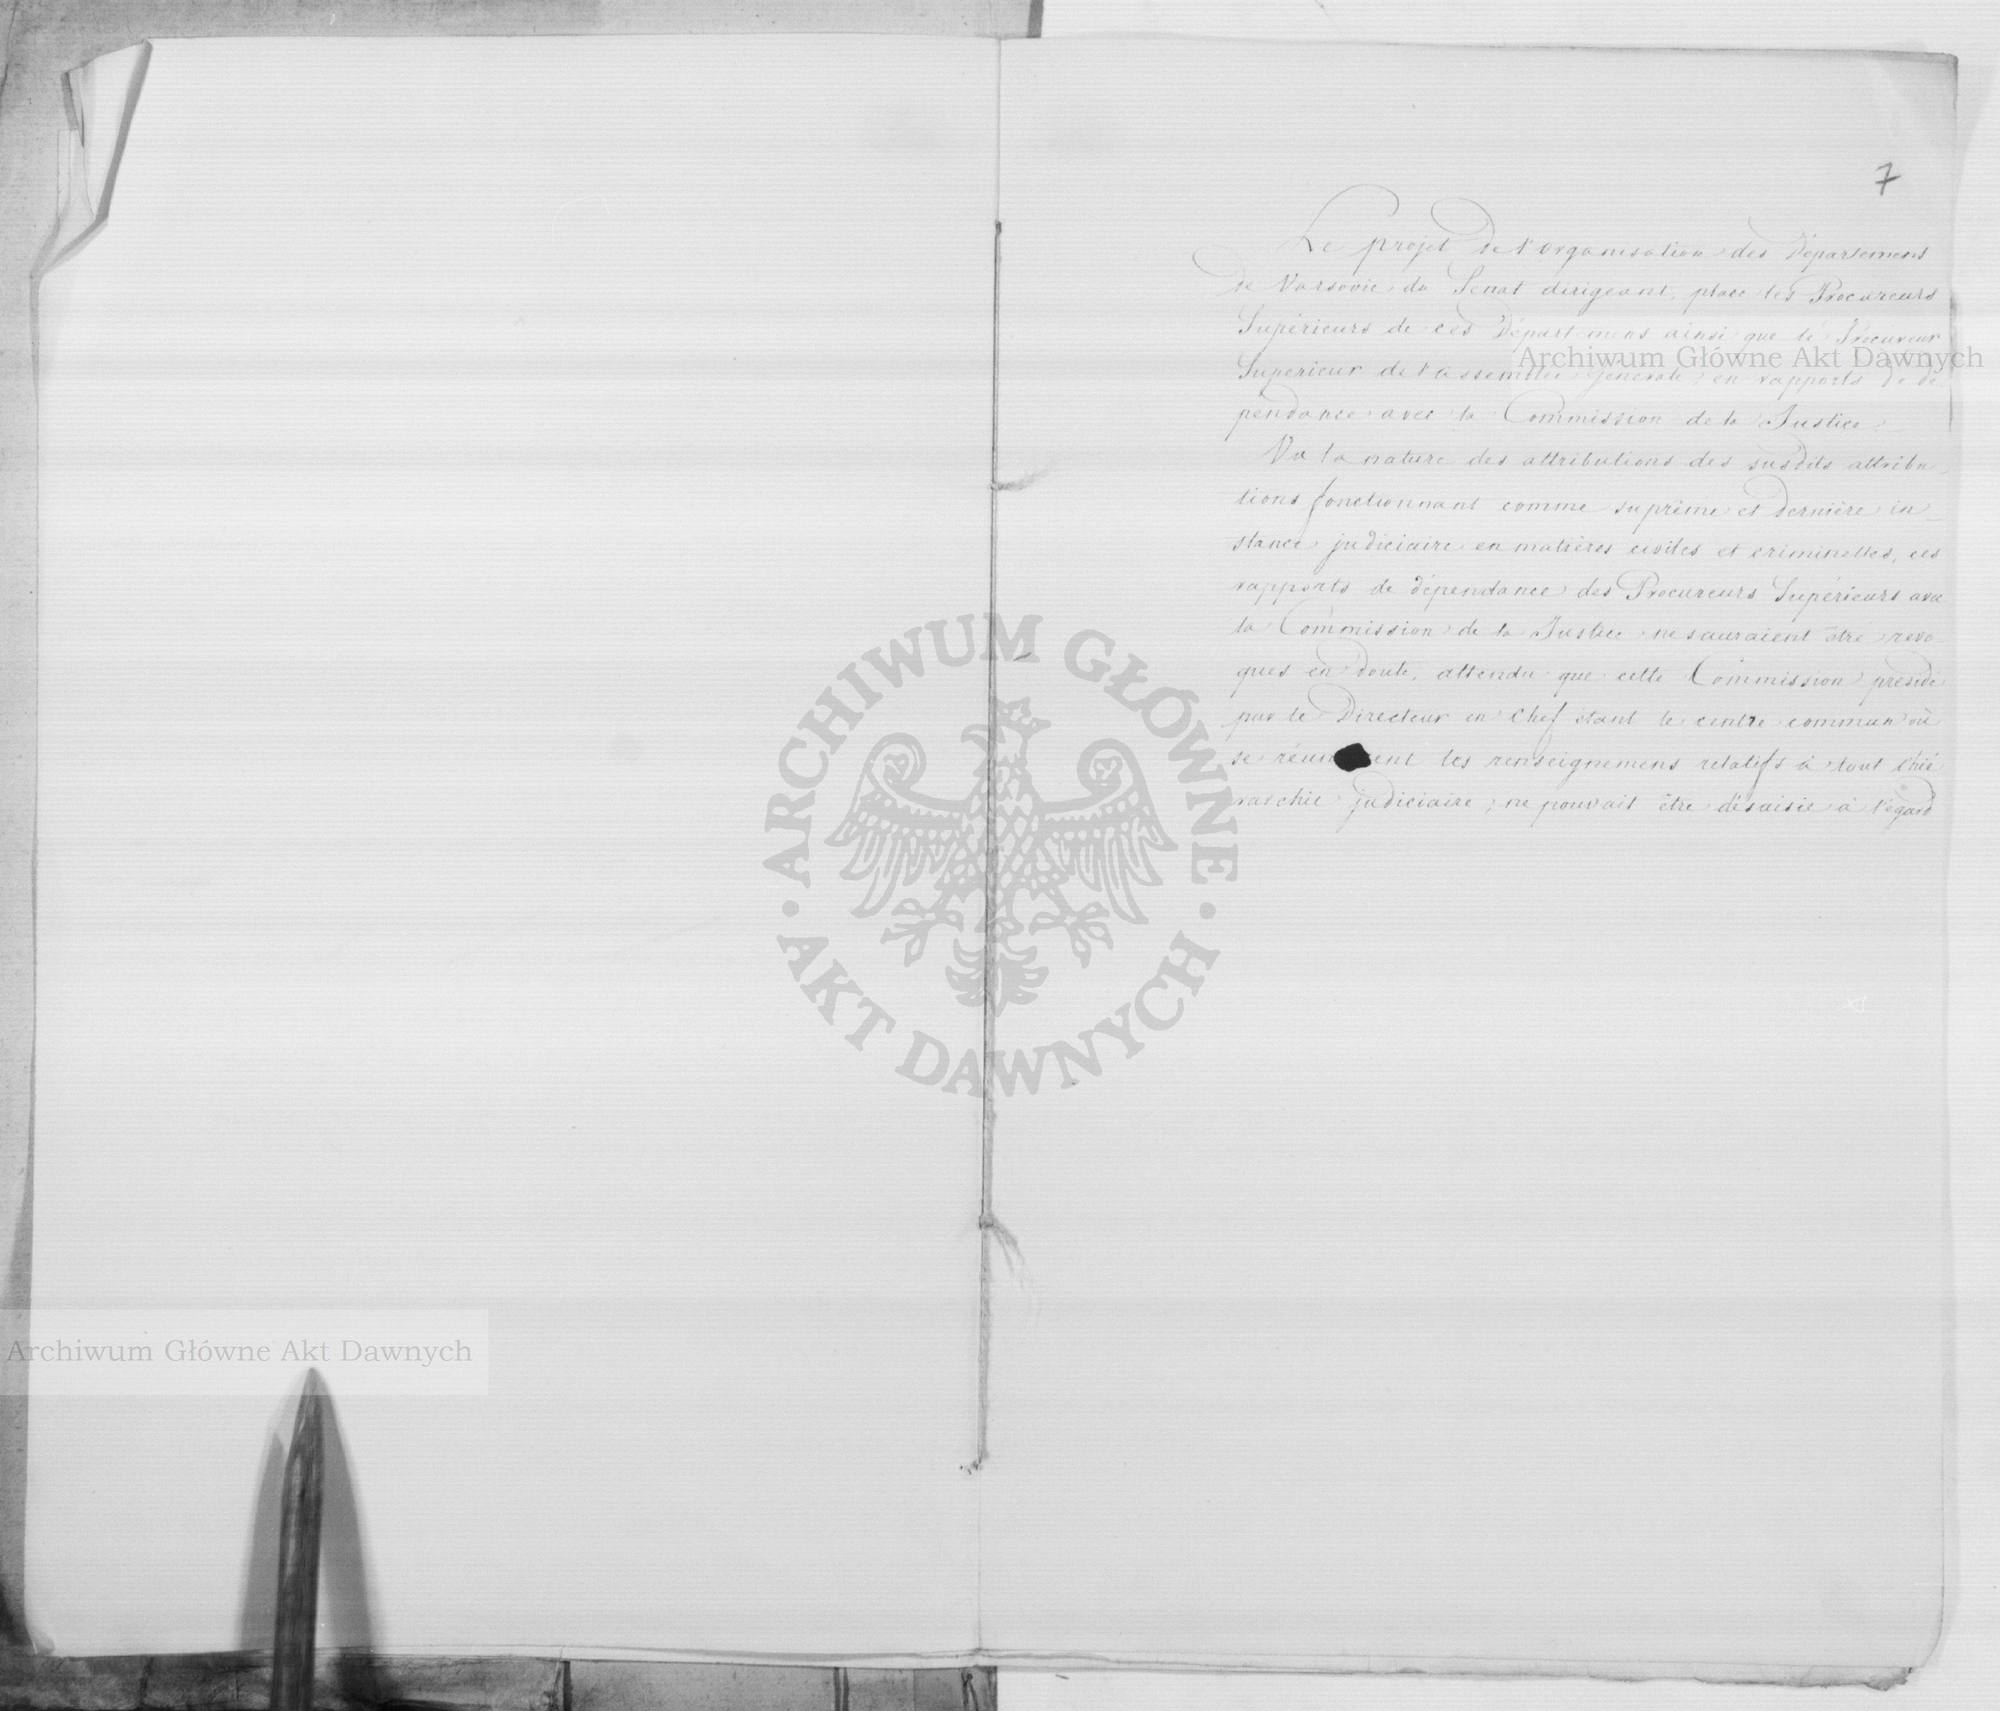 7
Le projet de l'organisation des Départemens
de Varsovie du Sénat dirigeant, place les Procureurs
Supérieurs de ces Départemens ainsi que le Procureur
Supérieur de l'assemblée générale, en rapports de dé
pendance avec la Commission de la Justice.
Vu la nature des attributions des susdits attribu
tions fonctionnant comme suprême et dernière in_
stance judiciaire en matières civiles et criminelles, ces
rapports de dépendance des Procureurs Supérieurs avec
la Commission de la Justice ne sauraient être revo
qués en doute, attendu que cette Commission présidé
par le Directeur en Chef étant le centre commun où
se réun ent les renseignemens relatifs à tout l'hié
rarchie judiciaire, ne pouvait être désaisie à l'égard
Archiwum Główne Akt Dawnych
ARCHIWUM GŁÓWNE • AKT DAWNYCH •
Archiwum Główne Akt Dawnych